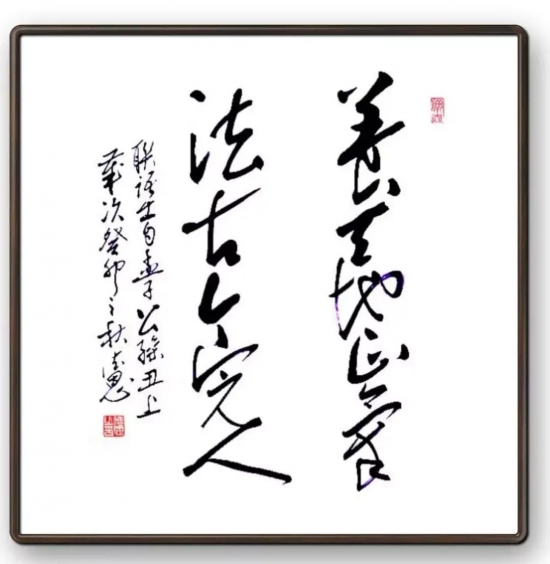 養天地正氣
法古今完人
聯語出自孟子公孫丑上
歲次癸卯之秋